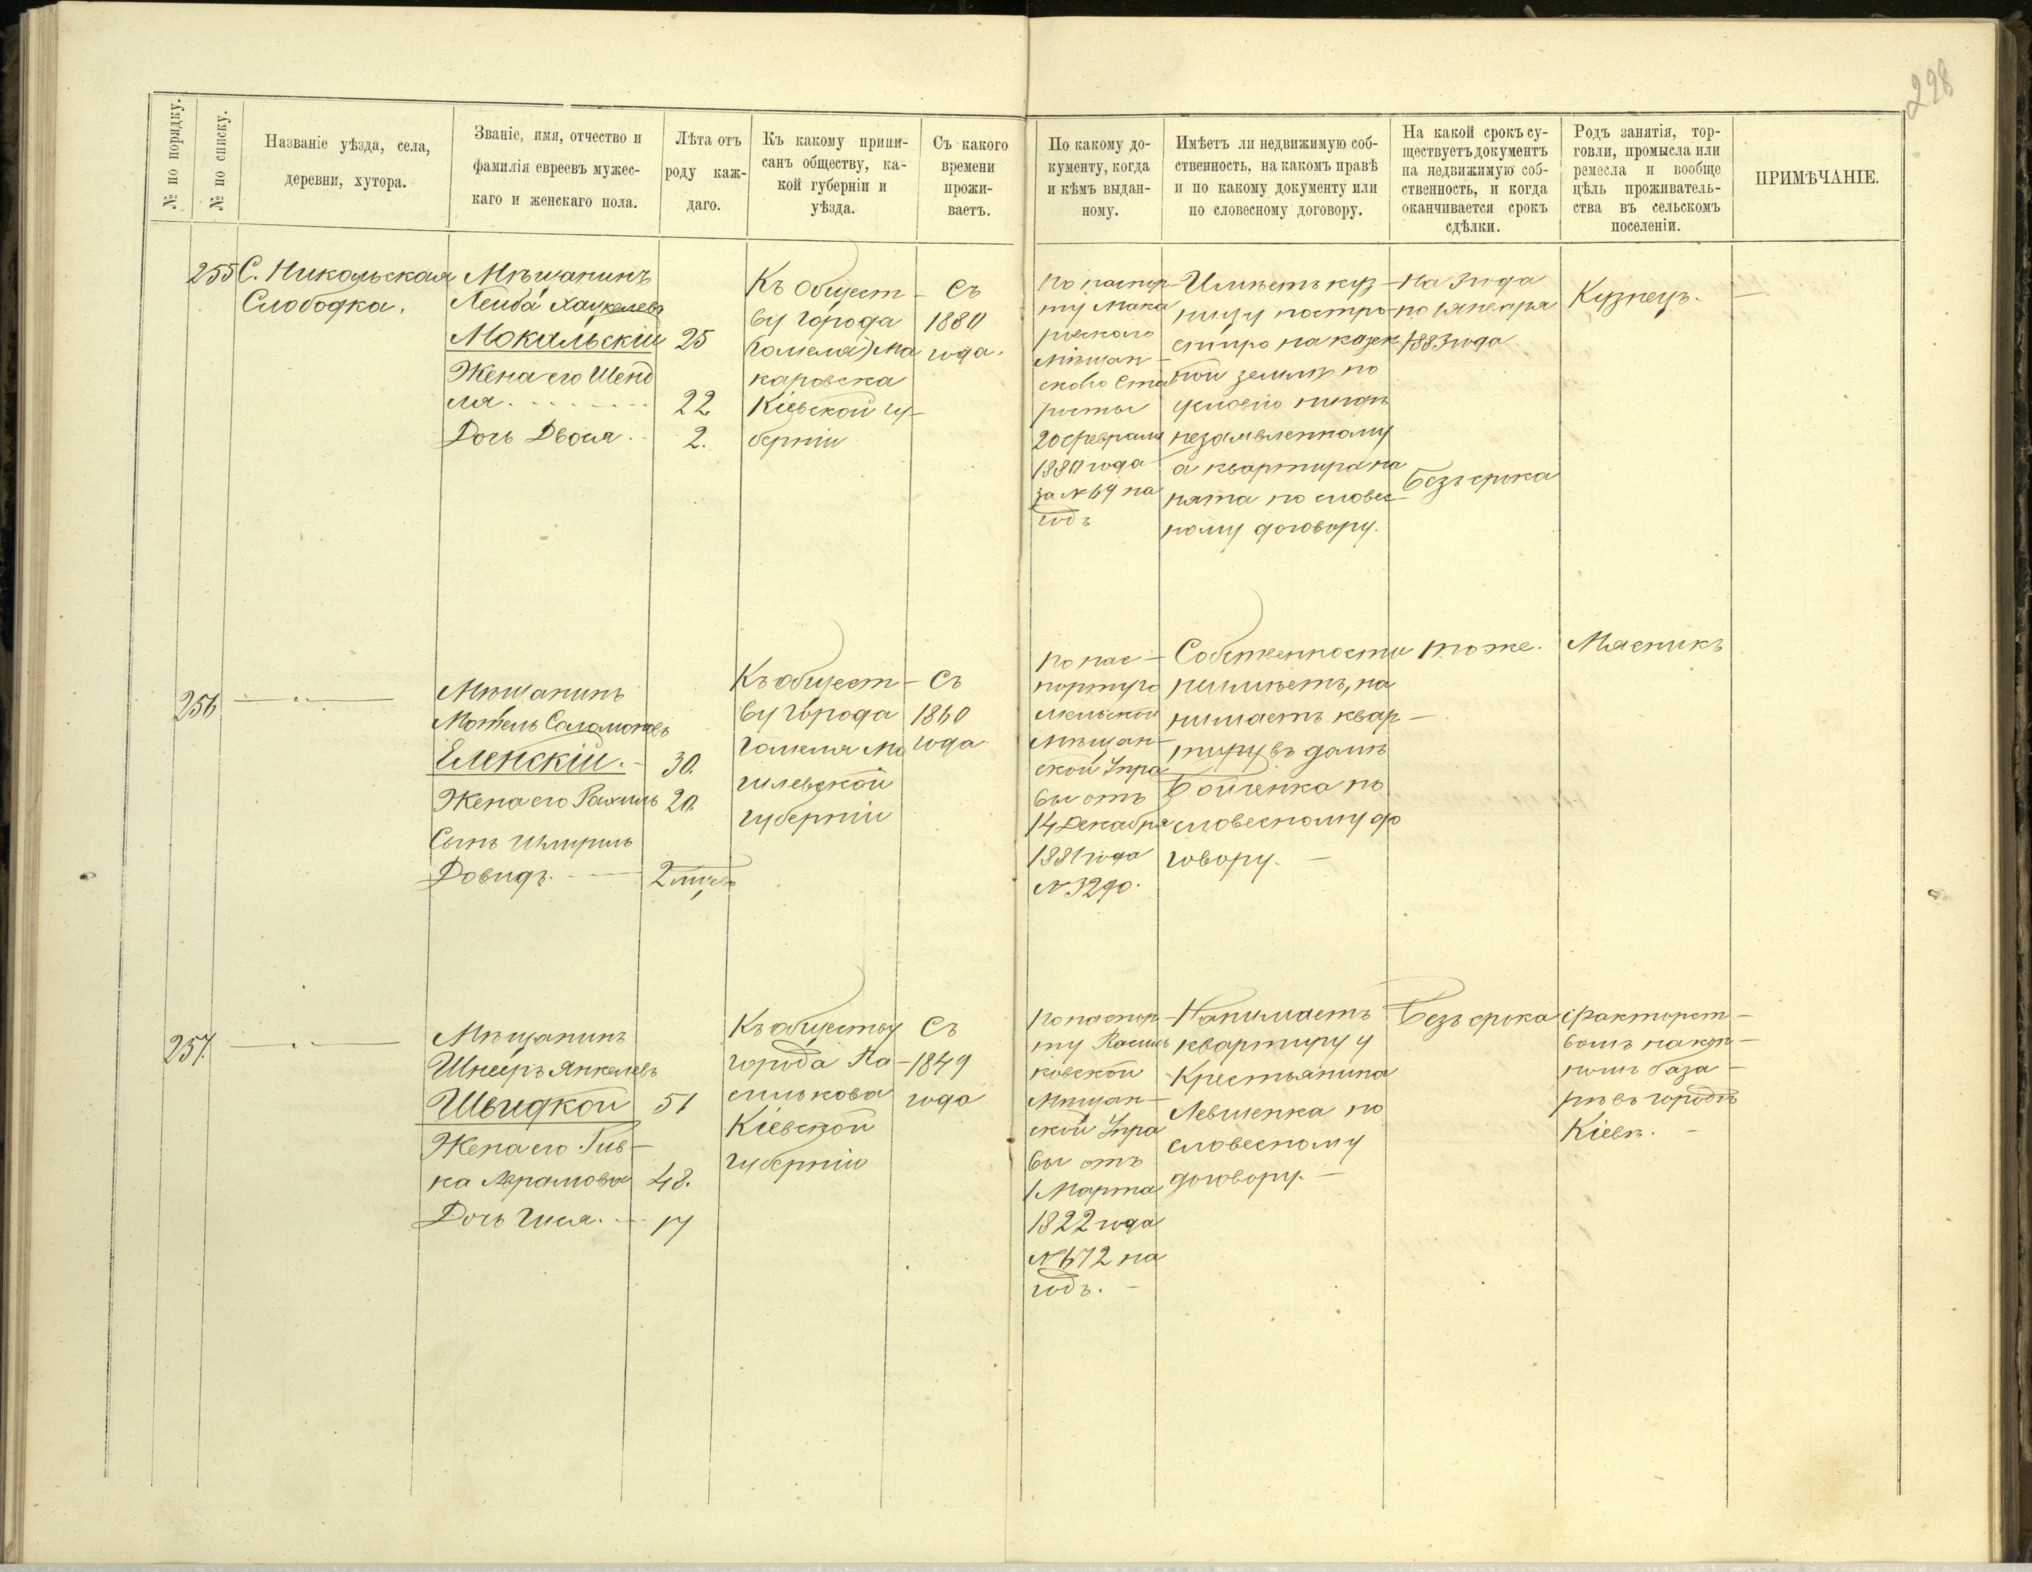 298
№ по порядку.
№ по списку.
Названіе уѣзда, села,
деревни, хутора.
Званіе, имя, отчество и
фамилія евреевъ мужес-
каго и женскаго пола.
Лѣта отъ
роду каж-
даго.
Къ какому припи-
санъ обществу, ка-
кой губерніи и
уѣзда.
Съ какого
времени
прожи-
ваетъ.
По какому до-
кументу, когда
и кѣмъ выдан-
ному.
Имѣетъ ли недвижимую соб-
ственность, на какомъ правѣ
и по какому документу или
по словесному договору.
На какой срокъ су-
ществуетъ документъ
на недвижимую соб-
ственность, и когда
оканчивается срокъ
сдѣлки.
Родъ занятія, тор-
говли, промысла или
ремесла и вообще
цѣль проживатель-
ства въ сельскомъ
поселеніи.
ПРИМѢЧАНІЕ.
255
С. Никольская
Слободка.
Мѣщанинъ
Лейба Хацкелевъ
Мокальскій
Жена его Шенд
ля
Дочь Двося
25
22
2.
Къ Общест-
ву города
(Гомеля) Ма
каровска
Кіевской гу-
берніи
Съ
1880
года.
По паспор-
ту Мака
ровского
Мѣщан-
ского Ста
росты
20 февраля
1880 года
за № 69 на
годъ
Имѣетъ куз-
ницу постро-
енную на казен
ной землѣ по
условію нигдѣ
незаявленному
а квартира на
нята по словес-
ному договору.
На 3 года
по 1 января
1883 года
Безъ срока
Кузнецъ. —
256
— " —
Мѣщанинъ
Мотель Саломоновъ
Еленскій. -
Жена его Рахиль
Сынъ Шмуриль
Довидъ. —
30.
20.
2 мѣсъ
Къ общест-
ву города
Гомеля Мо
гилевской
губерніи
Съ
1860
года
По пас-
порту го
мельской
Мѣщан-
ской Упра
вы отъ
14 Декабря
1881 года
№ 3290.
Собственности
неимѣетъ, на
нимаетъ квар-
тиру въ домѣ
Бойченка по
словесному до
говору. —
тоже.
Мясникъ
257.
— " —
Мѣщанинъ
Шнеръ Янкелевъ
Швидкой
Жена его Рив-
ка Абрамова
Дочь Гися.
51
48.
17
Къ обществу
города Ва-
силькова
Кіевской
губерніи
Съ
1849
года
По паспор-
ту Василь
ковской
Мѣщан-
ской Упра
вы отъ
1 Марта
1822 года
№ 672 на
годъ. —
Нанимаетъ
квартиру у
Крестьянина
Левченка по
словесному
договору. —
Безъ срока
факторст-
вомъ на кон-
номъ база-
рѣ въ городѣ
Кіевѣ. —